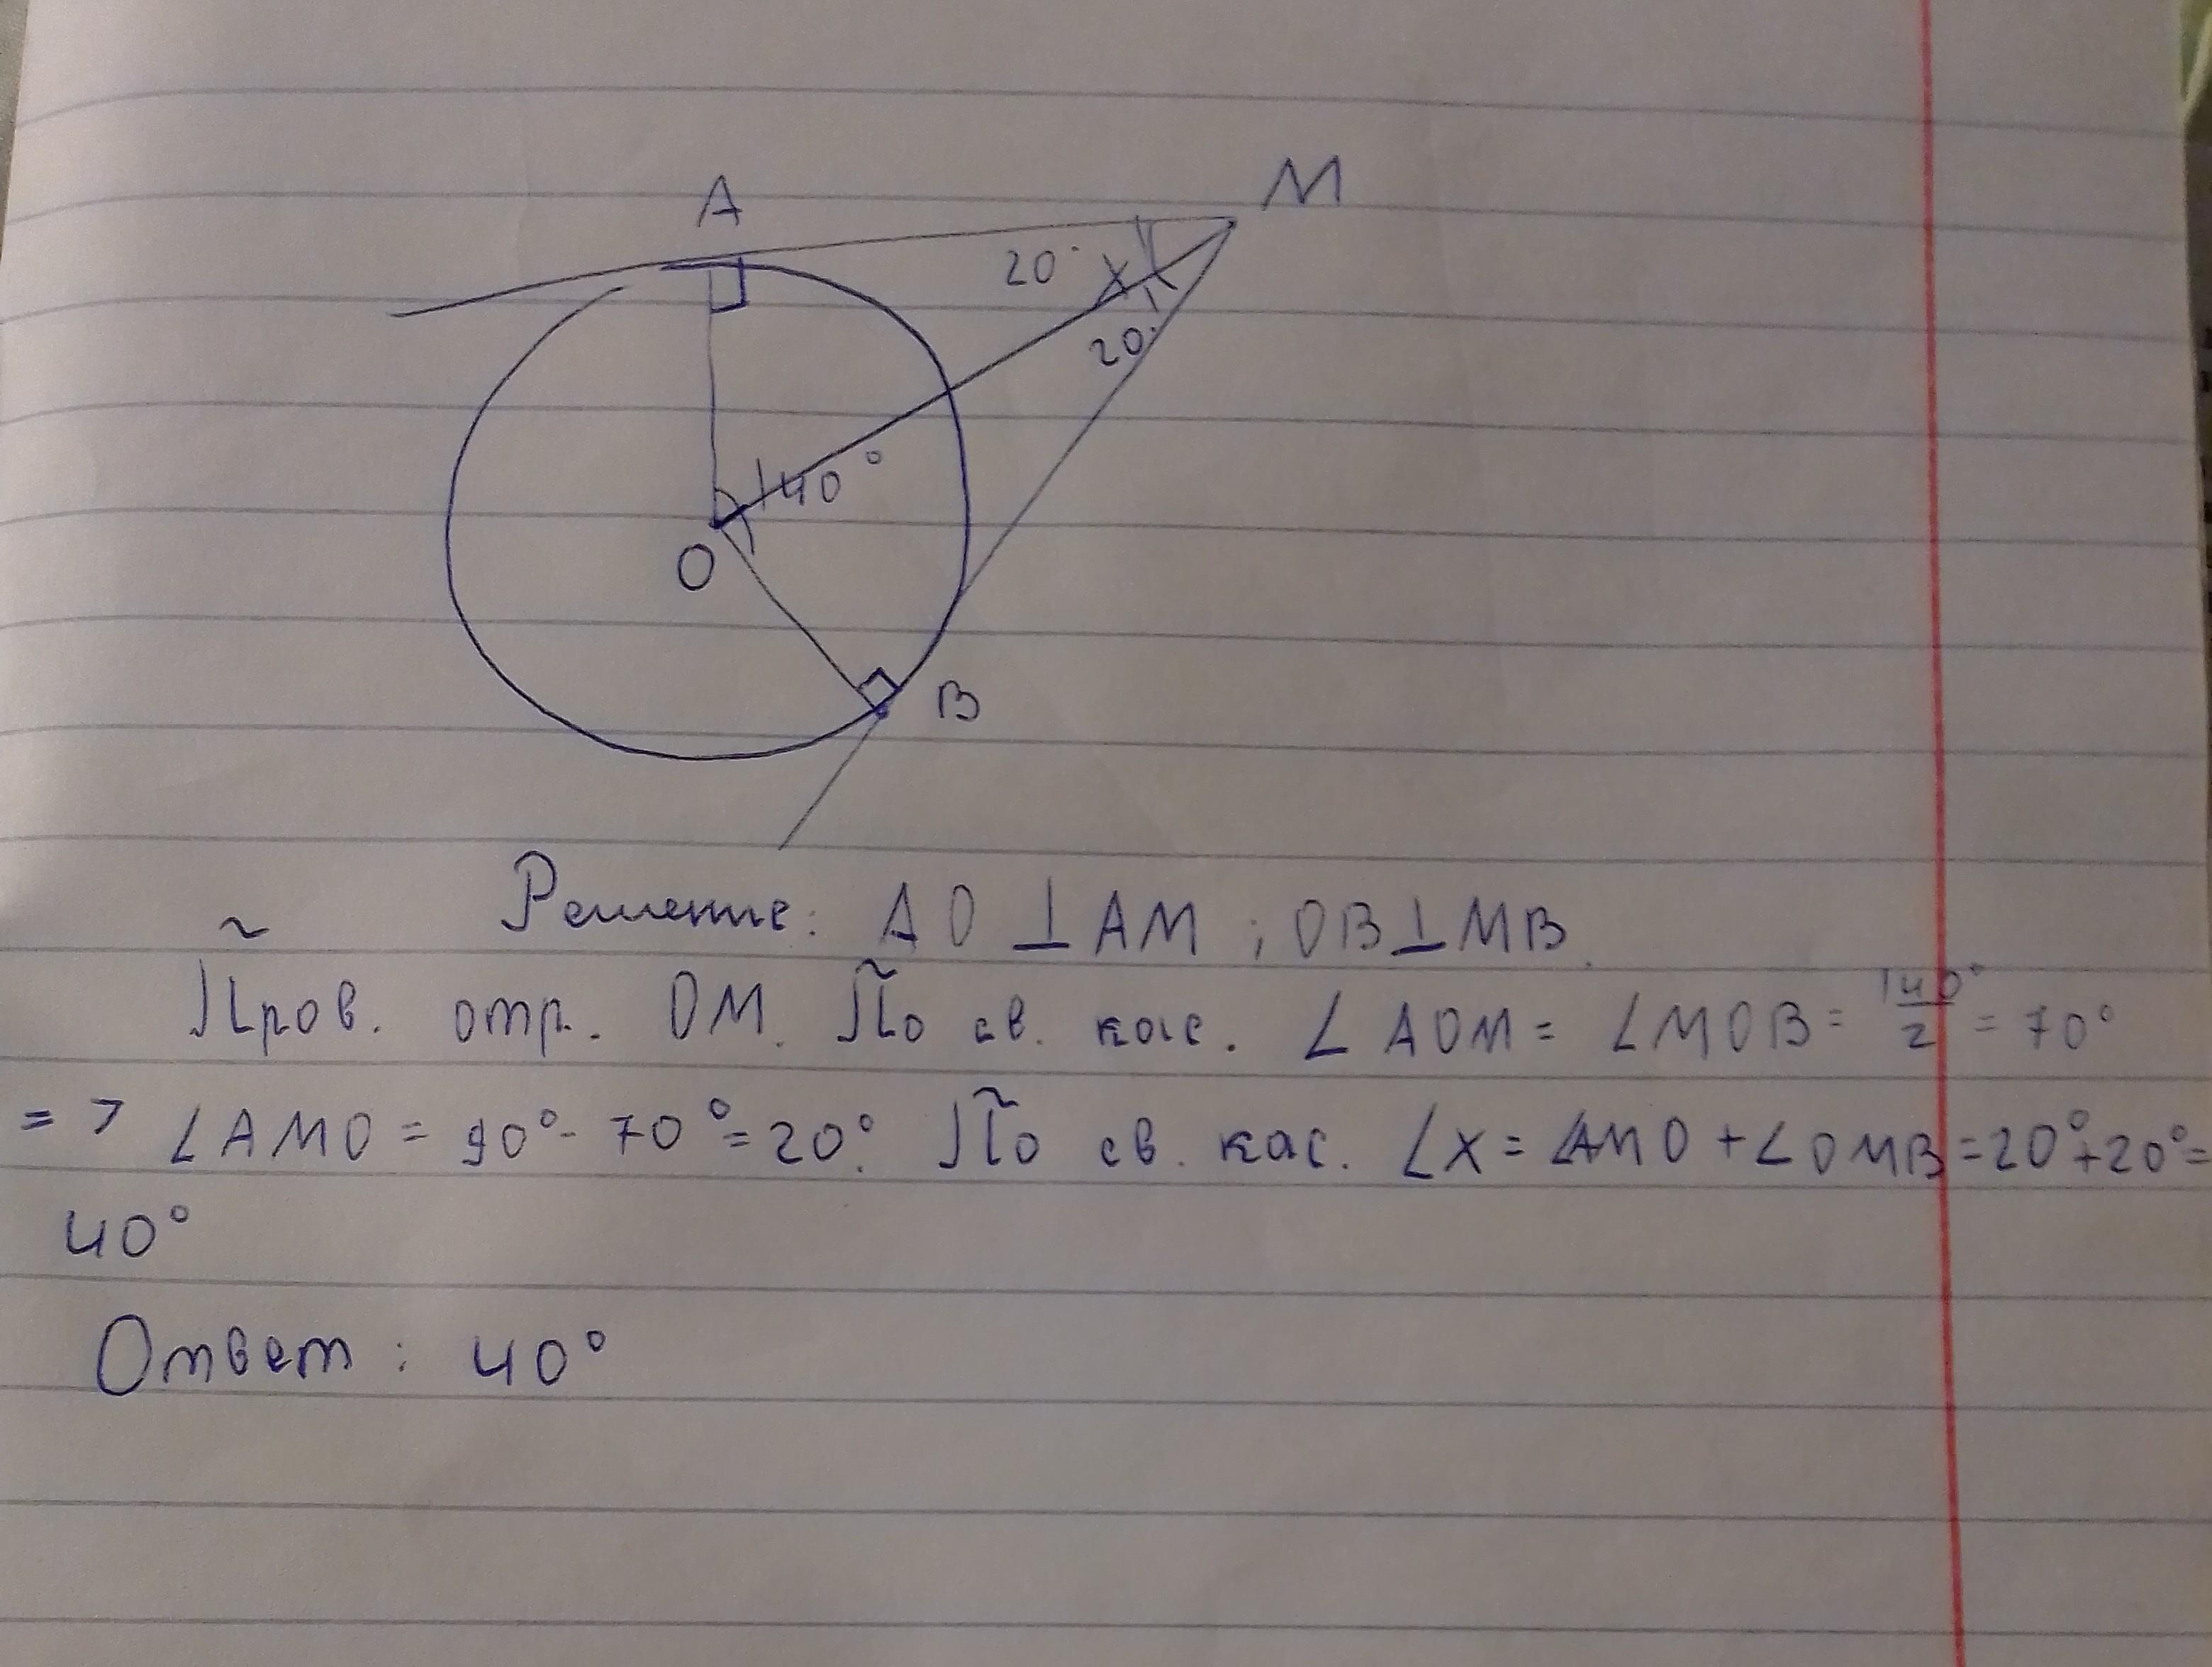 A
M
20°
X
20°
140°
O
B
Решение: AO ⊥ AM ; OB ⊥ MB.
Пров. отр. OM. По св. кас. ∠AOM = ∠MOB = 140°/2 = 70°
=> ∠AMO = 90° - 70° = 20°. По св. кас. ∠X = ∠AMO + ∠OMB = 20° + 20° =
40°
Ответ: 40°